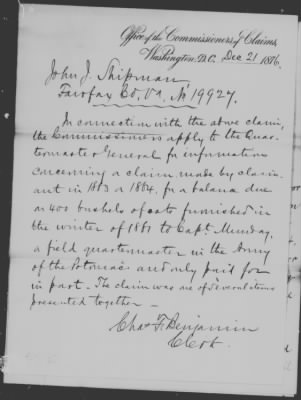 Office of the Commissioners of Claims,
Washington, D.C. Dec 21 1876.
John J. Shipman
Fairfax Co, Va, No 19927.
In connection with the above claim,
the Commissioners apply to the Quar-
termaster General for information
concerning a claim made by claim-
ant in 1863 or 1864, for a balance due
on 400 bushels of oats furnished in
the winter of 1861 to Capt.
a field quartermaster in the Army
of the Potomac and only paid for
in part. The claim was one of several items
presented together —
Chas F. Benjamin
Clerk.